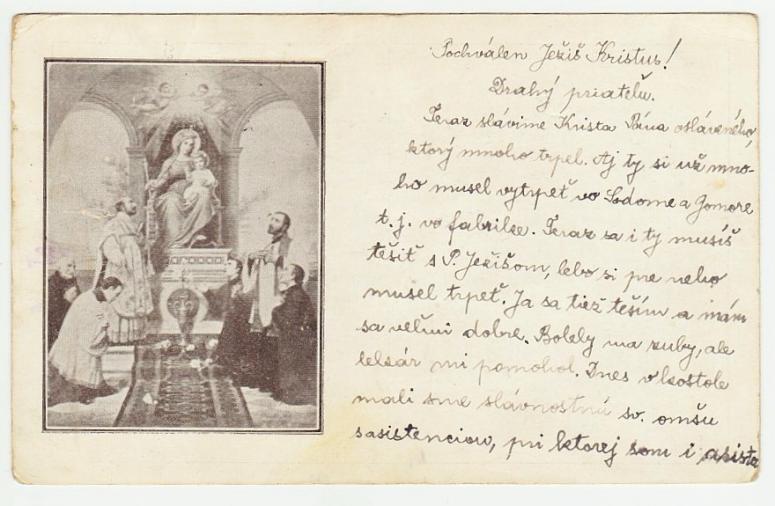 Pochválen Ježiš Kristus!
Drahý priateľu.
Teraz slávime Krista Pána osláveného,
ktorý mnoho trpel. Aj ty si už mno-
ho musel vytrpeť vo Sodome a Gomore
t. j. vo fabrike. Teraz sa i ty musíš
tešiť s P. Ježišom, lebo si pre neho
musel trpeť. Ja sa tiež teším a mám
sa veľmi dobre. Bolely ma zuby, ale
lekár mi pomohol. Dnes v kostole
mali sme slávnostnú sv. omšu
sasistenciou, pri ktorej som i asisto